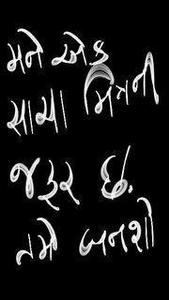 મને એક
સાચા મિત્રની
જરૂર છે.
તમે બનશો